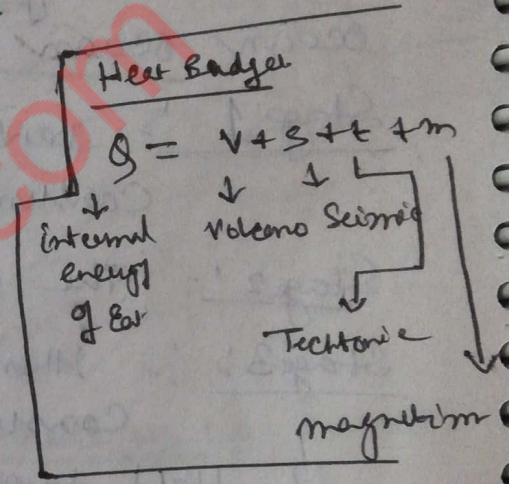 com
Heat Budget
Q = V + S + t + m
internal
energy
of Ear
Volcano Seismic
Techtonic
magnetism